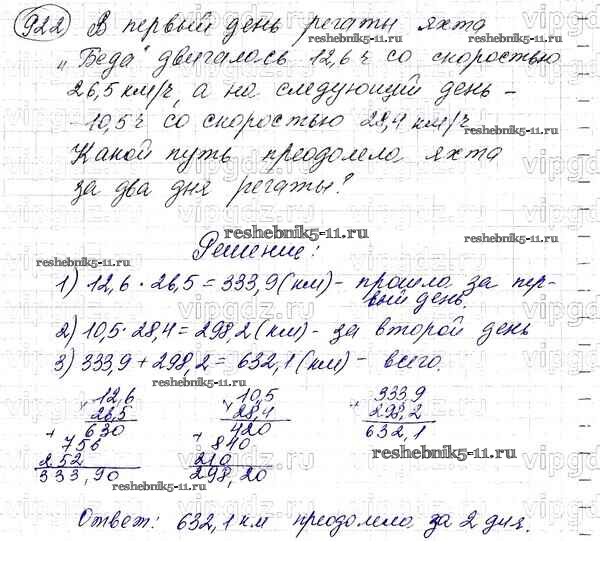 922) В первый день регаты яхта
reshebnik5-11.ru
„Беда" двигалась 12,6 ч со скоростью
26,5 км/ч, а на следующий день –
– 10,5 ч со скоростью 28,4 км/ч.
reshebnik5-11.ru
Какой путь преодолела яхта
за два дня регаты?
reshebnik5-11.ru
Решение:
reshebnik5-11.ru
1) 12,6 · 26,5 = 333,9 (км) – прошла за пер-
вый день.
2) 10,5 · 28,4 = 298,2 (км) – за второй день
3) 333,9 + 298,2 = 632,1 (км) – всего.
reshebnik5-11.ru
12,6 10,5 333,9
26,5 28,4 298,2
630 420 632,1
+ 756 + 840
252 210
333,90 298,20
reshebnik5-11.ru
reshebnik5-11.ru
Ответ: 632,1 км преодолела за 2 дня.